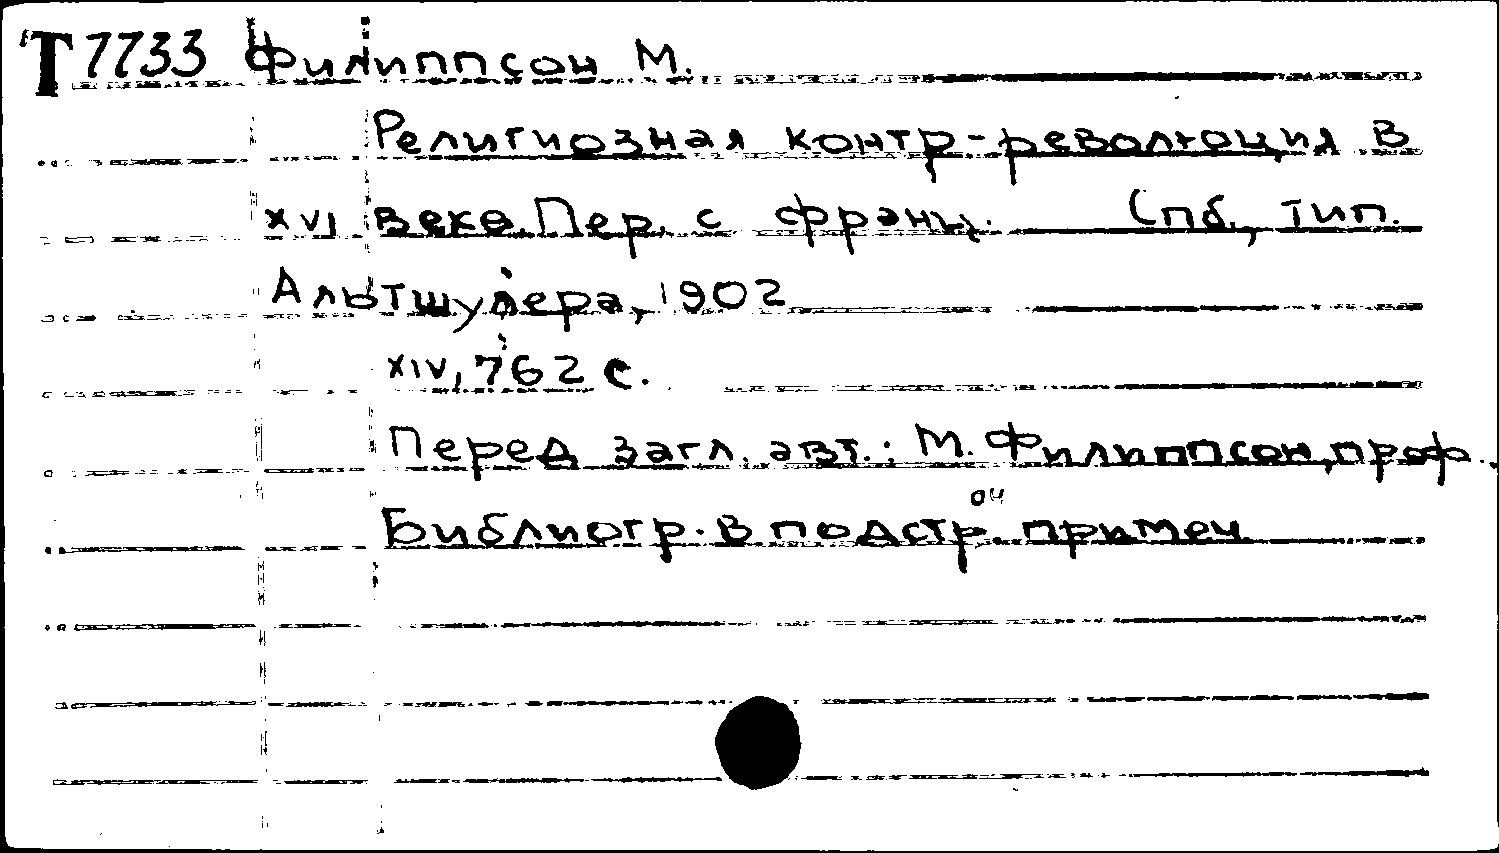 Т7733 Филиппсон М.
Религиозная контр-революция в
XVI веке. Пер. с франц. Спб., тип.
Альтшулера, 1902
XIV, 762 с.
Перед загл. авт.: М. Филиппсон, проф.
Библиогр. в подстроч. примеч.